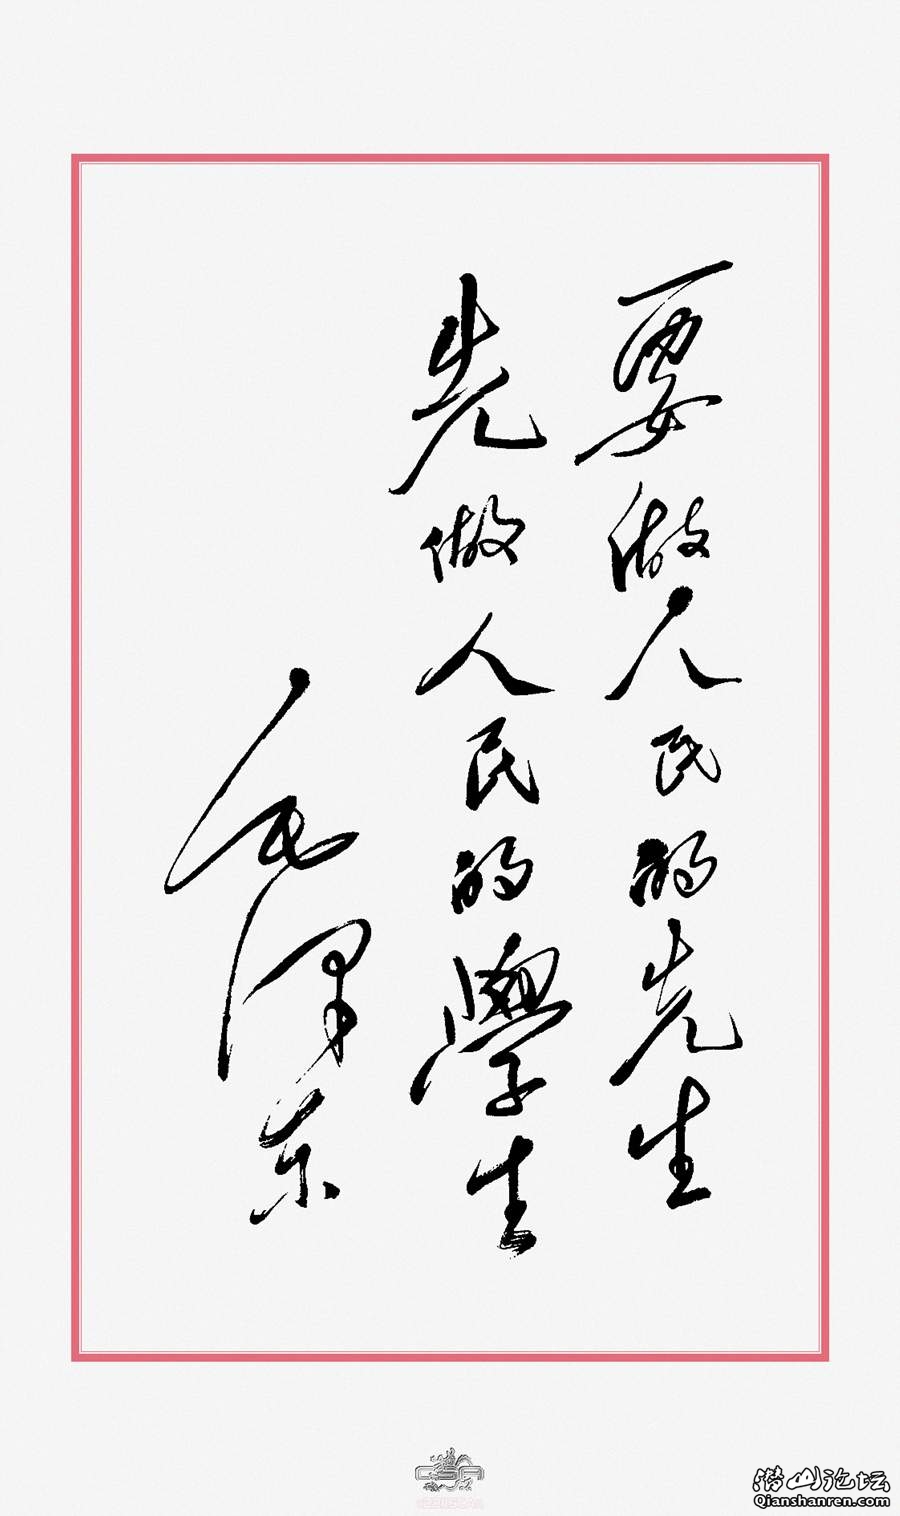 要做人民的先生
先做人民的學生
毛泽东
CSA
潜山论坛
Qianshanren.com